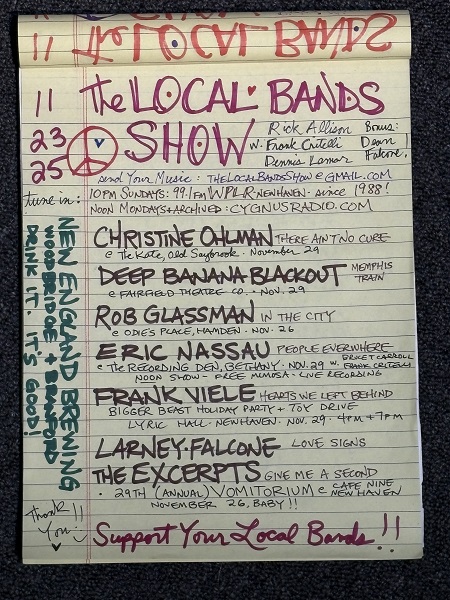 11 the LOCAL BANDS
11 the LOCAL BANDS
23 SHOW w. Rick Allison Bonus:
25 Frank Critelli Dean
Dennis Lamar Falcone!
send Your Music: THELOCALBANDSSHOW@GMAIL.COM
tune in: 10PM SUNDAYS: 99.1FM WPLR - NEW HAVEN - since 1988!
NOON MONDAYS + ARCHIVED: CYGNUSRADIO.COM
CHRISTINE OHLMAN THERE AIN'T NO CURE
@ The Kate, Old Saybrook · November 29
DEEP BANANA BLACKOUT MEMPHIS TRAIN
@ FAIRFIELD THEATRE CO. · NOV. 29
ROB GLASSMAN IN THE CITY
@ ODIE'S PLACE, HAMDEN · NOV. 26
ERIC NASSAU PEOPLE EVERYWHERE
@ THE RECORDING DEN, BETHANY · NOV. 29 W. BRICET CARROLL + FRANK CRITELLI
NOON SHOW - FREE MIMOSA - LIVE RECORDING
FRANK VIELE HEARTS WE LEFT BEHIND
BIGGER BEAST HOLIDAY PARTY + TOY DRIVE
LYRIC HALL · NEW HAVEN · NOV. 29 · 4PM + 7PM
LARNEY·FALCONE LOVE SIGNS
THE EXCERPTS GIVE ME A SECOND
· 29TH (ANNUAL) VOMITORIUM @ CAFE NINE NEW HAVEN
NOVEMBER 26, BABY!!
NEW ENGLAND BREWING
WOODBRIDGE + BRANFORD
DRINK IT. IT'S GOOD!
Thank You !!
Support Your Local Bands!!